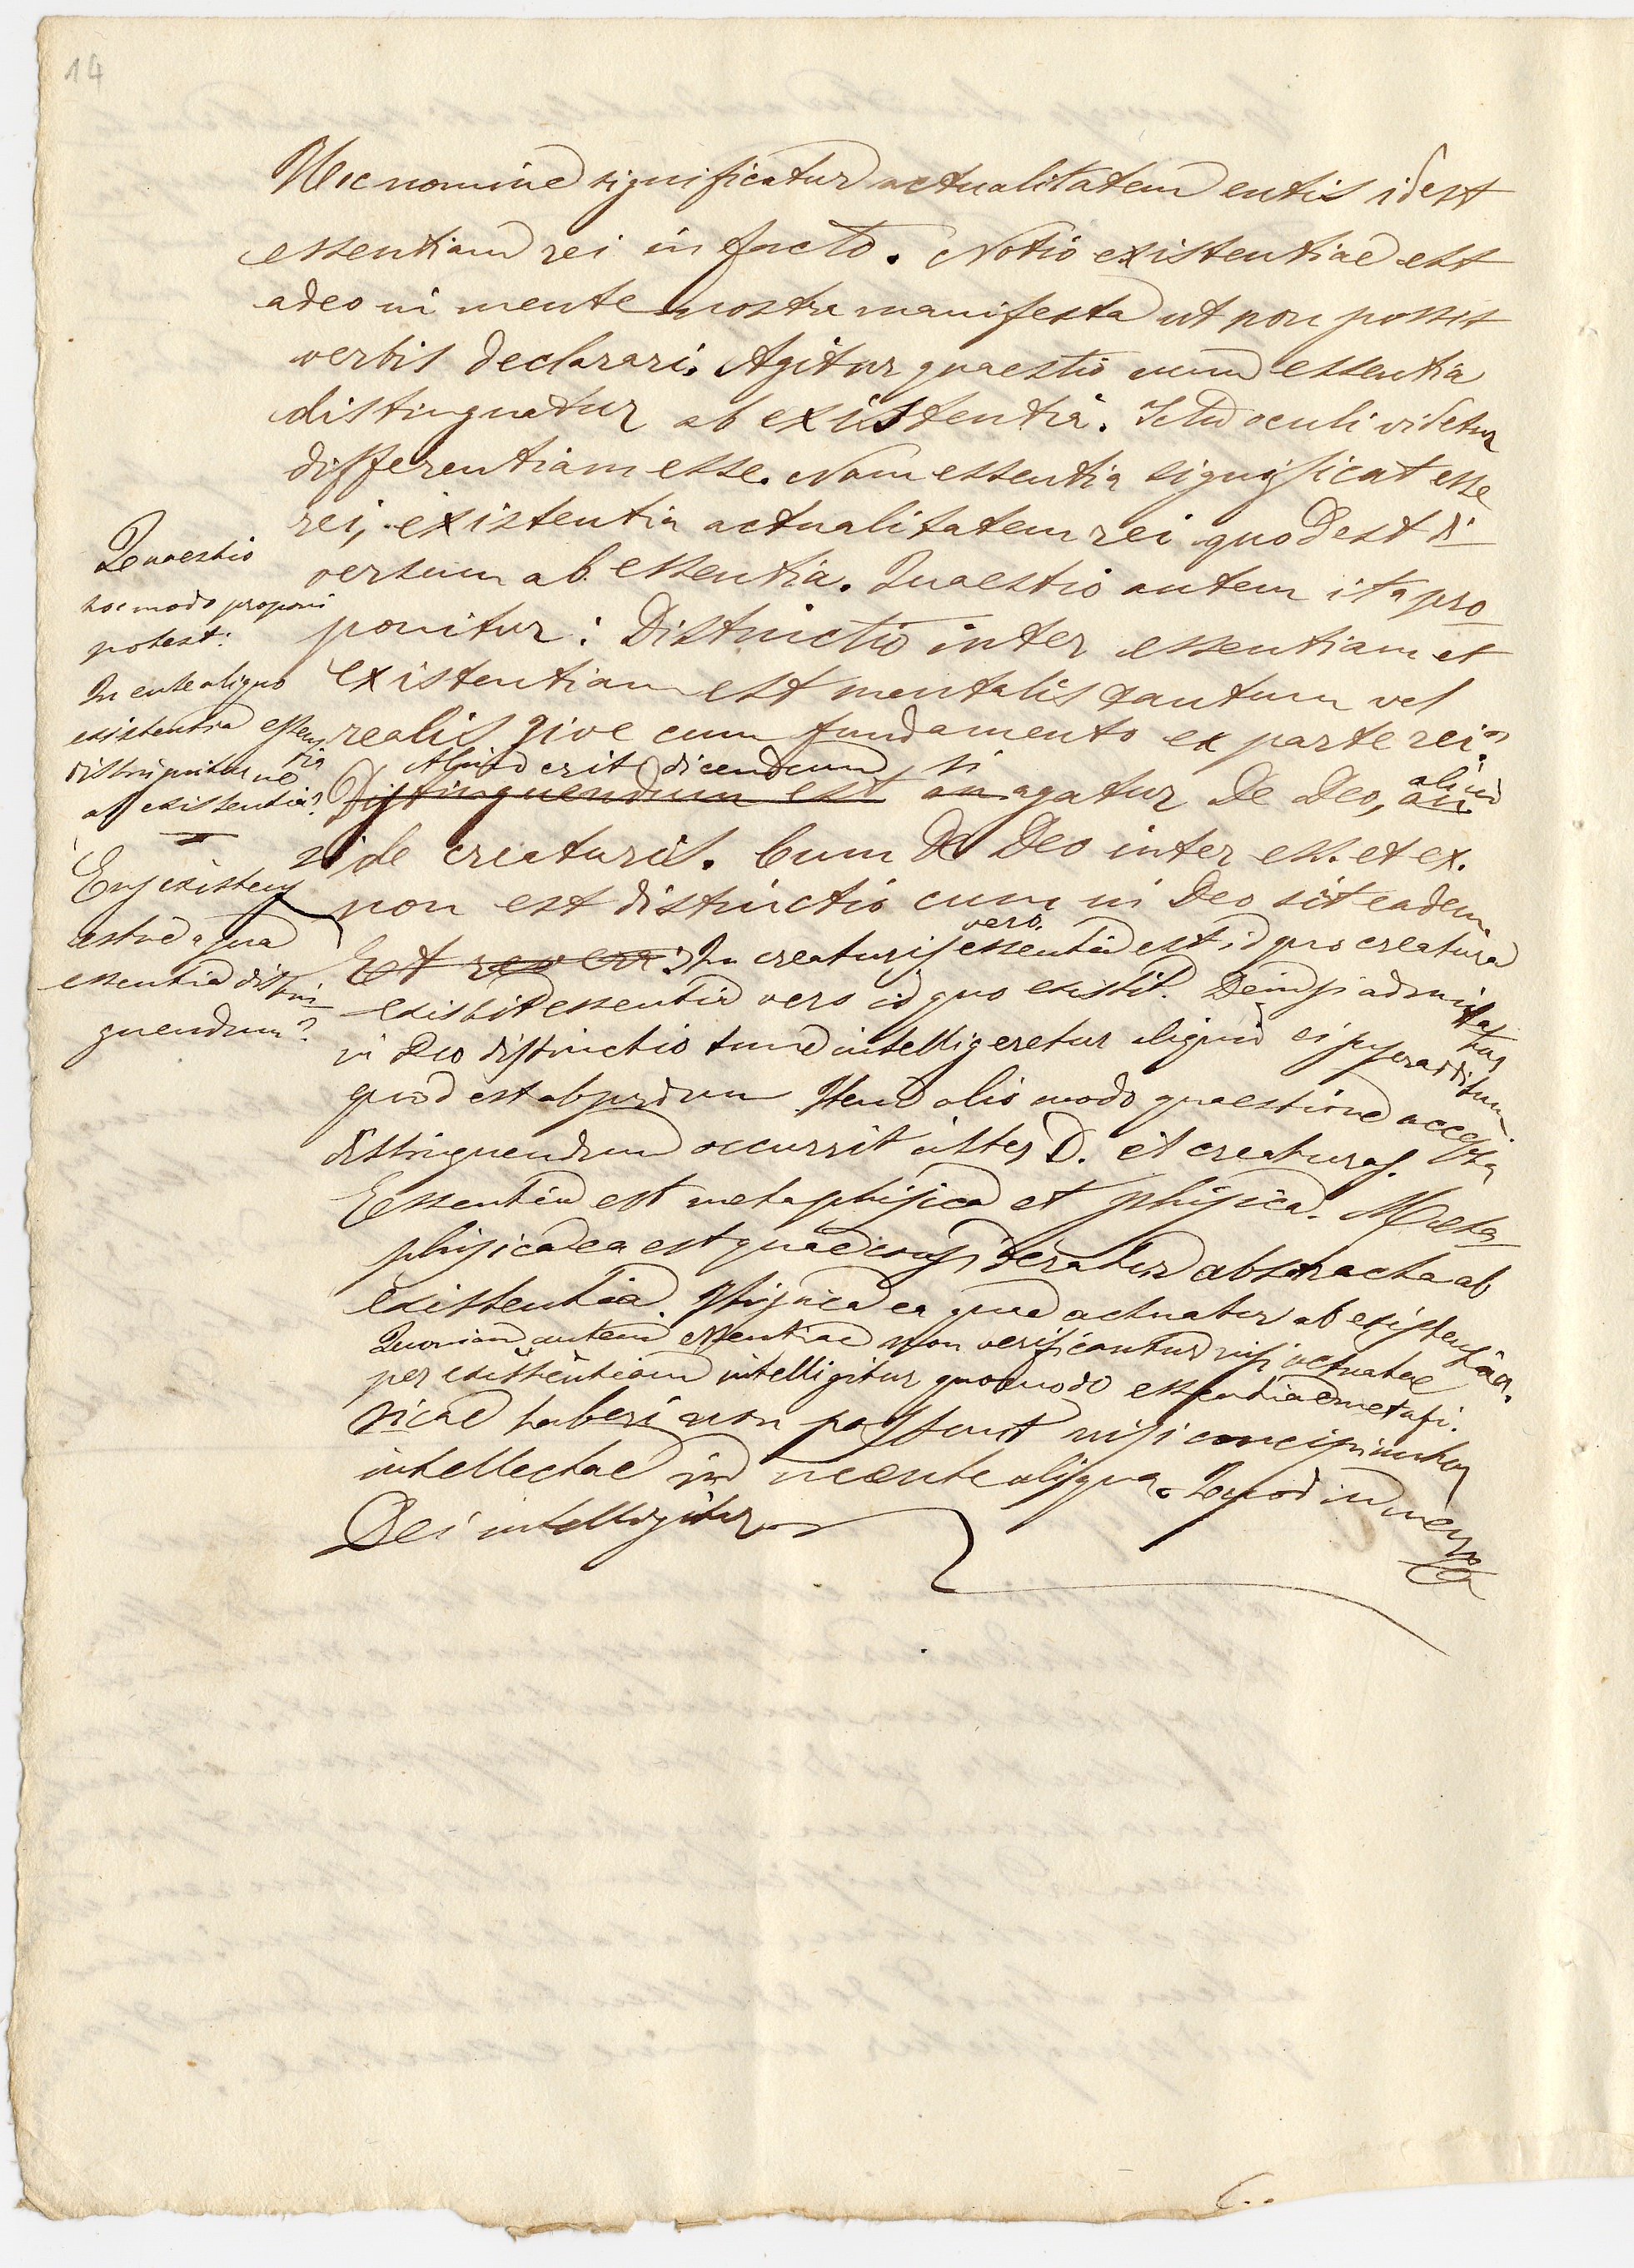 14
Hoc nomine significatur actualitatem entis idest
essentiam rei in facto. Notio existentiae est
adeo in mente nostra manifesta ut non possit
verbis declarari. Agitur quaestio num essentia
distinguatur ab existentia. Ictu oculi videtur
differentiam esse. Nam essentia significat esse
rei, existentia actualitatem rei quod est di
versum ab essentia. Quaestio autem ita pro
ponitur: Distinctio inter essentiam et
existentiam est mentalis tantum vel
realis sive cum fundamento ex parte rei?
Aliud erit dicendum si
Distinguendum est an agatur De Deo, an aliud
si de creaturis. Cum De Deo inter ess. et ex.
non est distinctio cum in Deo sit eadem
Et re vera: In creaturis vero essentia est id quo creatura
existit essentia vero id quo existit. Dein si admittatur
in Deo distinctio tunc intelligeretur aliquid ei superadditum
quod est absurdum Item alio modo quaestione accepta
distinguendum occurrit inter D. et creaturas.
Essentia est metaphisica et phisica. Meta
phisica ea est quae consideratur abstracta ab
existentia. Phisica ea quae actuatur ab existentia.
Quoniam autem essentiae non verificantur nisi actuatae
per existentiam intelligitur quomodo essentiae metafi.
sicae haberi non possunt nisi concipiuntur
intellectae in mente aliqua. Quod in mente
Dei intelligitur
Quaestio
hoc modo proponi
potest:
In ente aliquo
existentia essen
tia
distinguitur ne
ab existentia?
Ens existens
estne a sua
essentia distin
guendum?
6..